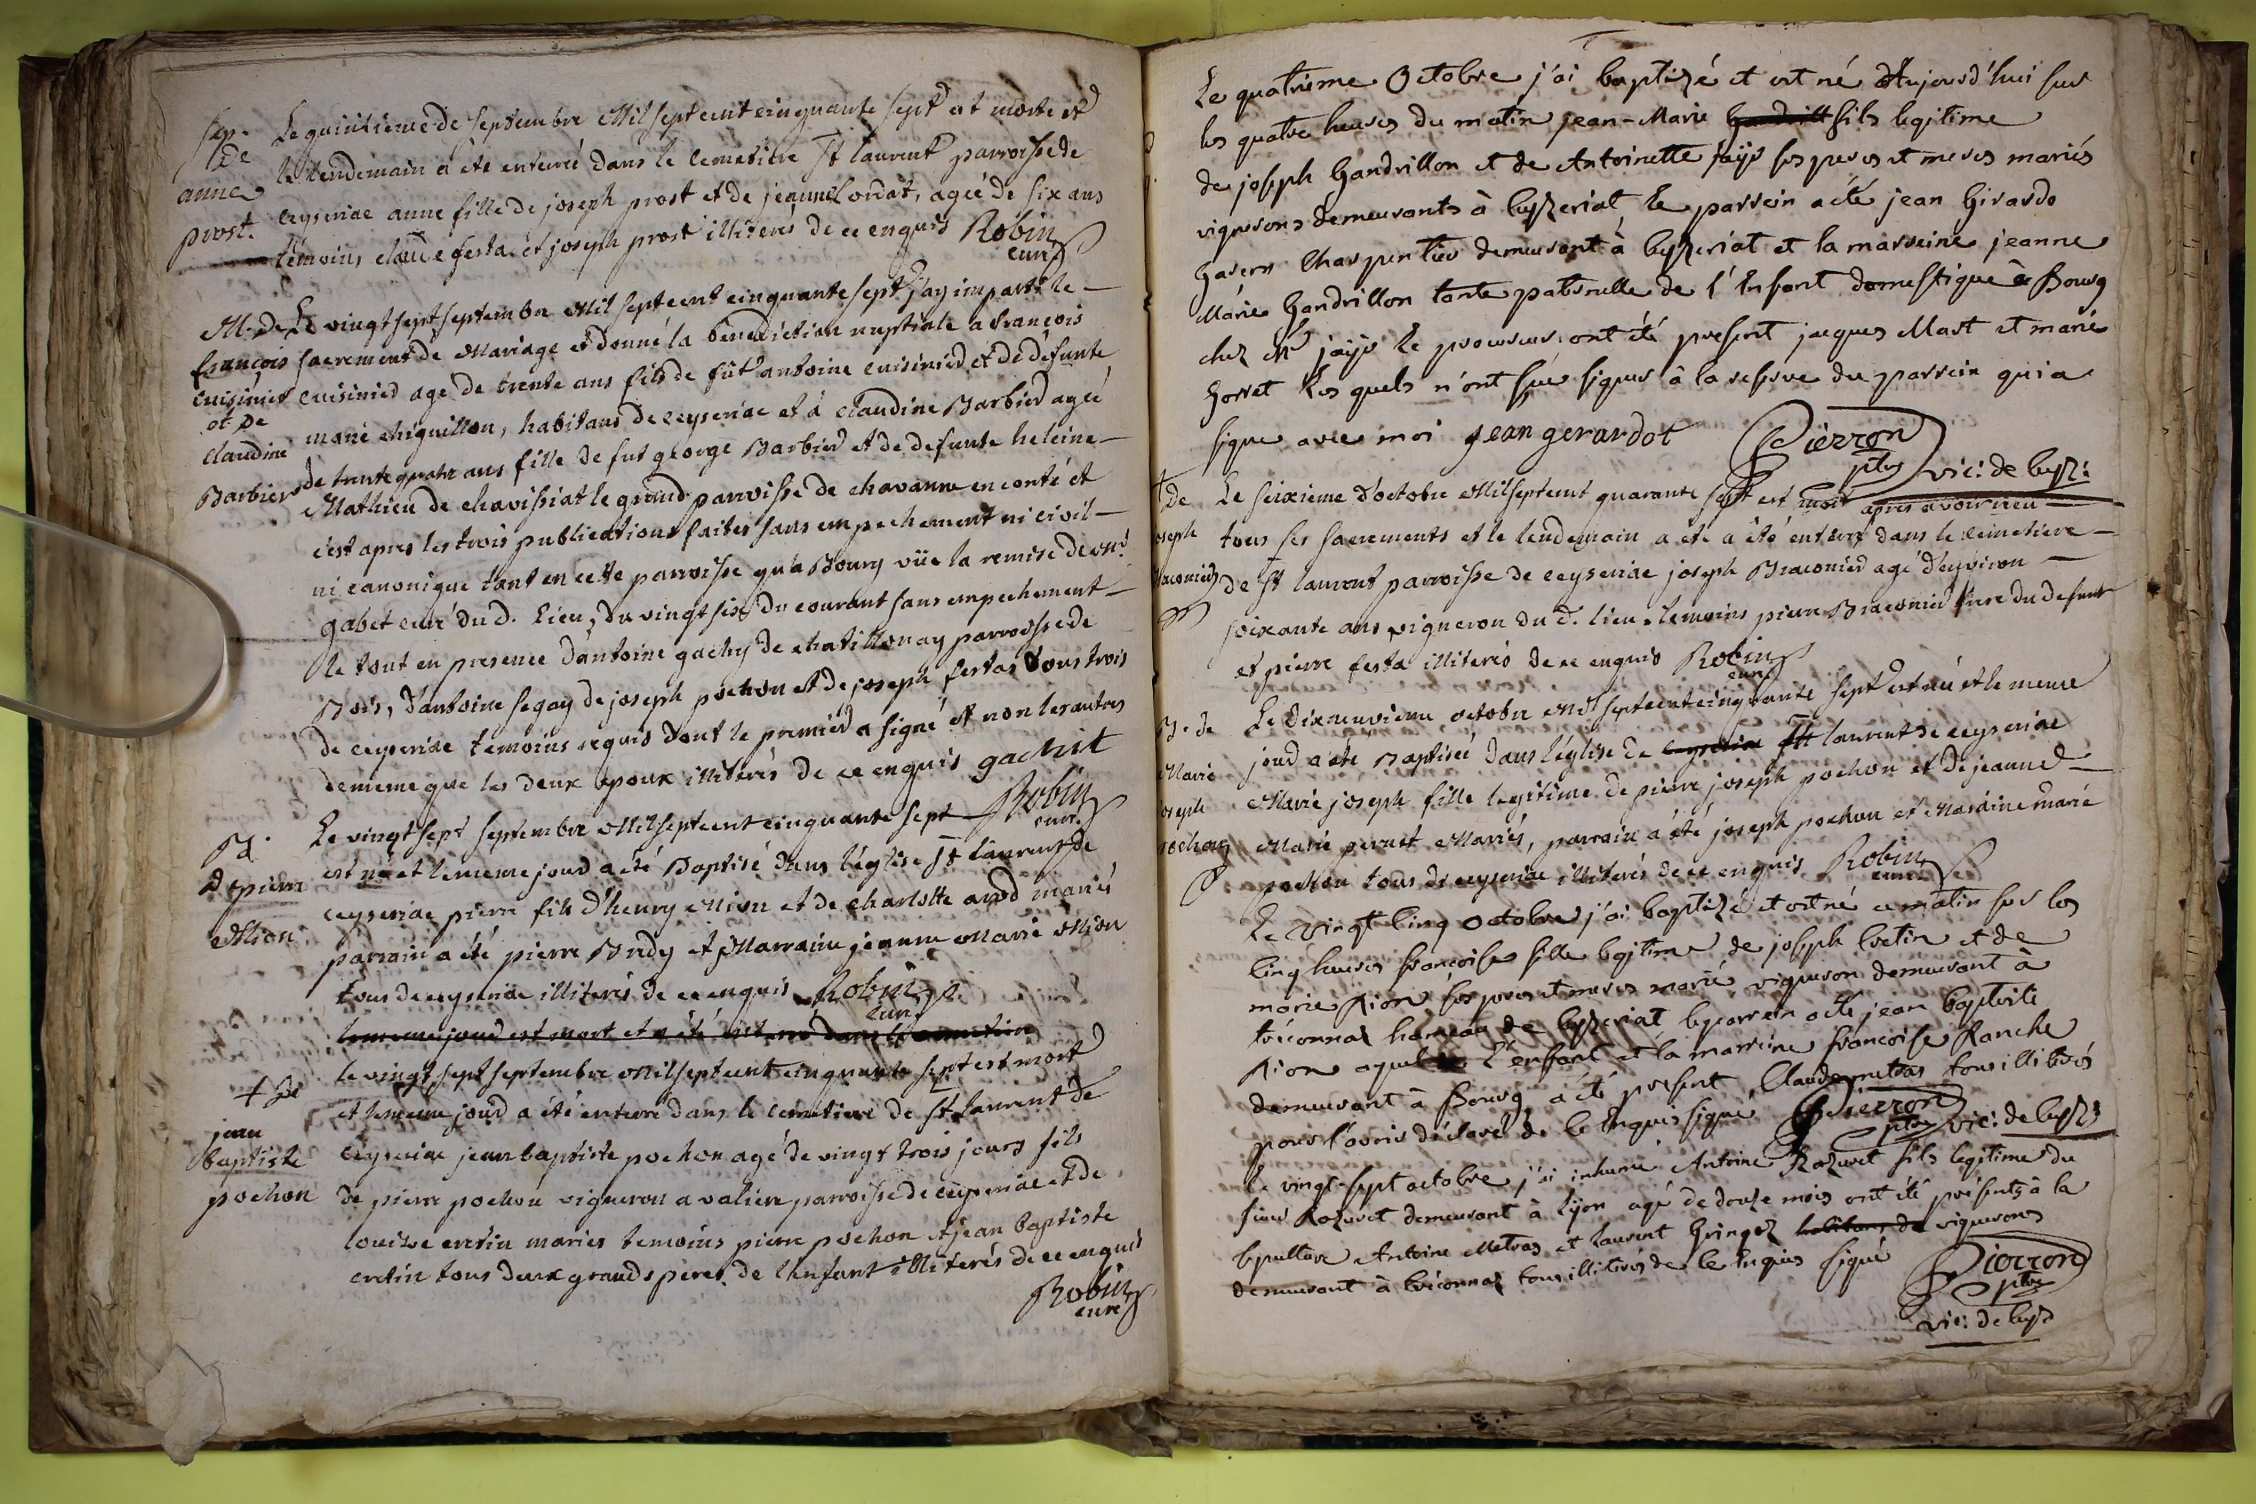 sep.
de
anne
prost.
Le quinsieme de septembre Mil sept cent cinquante sept est morte et
le lendemain a été enterrée dans le cemetiere St laurent parroisse de
ceyseriac anne fille de joseph prost et de jeanne Cordat, agée de six ans
témoins claude festa et joseph prost illiterés de ce enquis Robin
curé
M. de
françois
cuisinier
et de
claudine
Barbier
Le vingt sept septembre Mil sept cent cinquante sept j'ay imparti le
sacrement de Mariage et donné la bénédiction nuptiale a françois
cuisinier agé de trente ans fils de fût antoine cuisinier et de défunte
marie chiquillon, habitans de ceyseriac et à claudine Barbier agée
de trente quatre ans fille de fut george Barbier et de defunte heleine
Mathieu de chavissiat le grand parroisse de chavanne en conté et
c'est apres les trois publications faites sans empechement ni civil
ni canonique tant en cette parroisse qu'a Bourg vüe la remise de mr
gabet curé du d. lieu, du vingt six du courant sans empechement
le tout en presence d'antoine gachy de chatillonay parroisse de
Bois, d'antoine segay de joseph pochon et de joseph festas tous trois
de ceyseriac temoins requis dont le premier a signé et non les autres
de meme que les deux epoux illiterés de ce enquis gachit
Robin
curé
B.
de pierre
Mion
Le vingt sept septembre Mil sept cent cinquante sept
est né et le meme jour a été Baptisé dans l'église St Laurent de
ceyseriac pierre fils d'henry Mion et de charlotte mariés
parrain a été pierre Bredy et Marraine jeanne Marie Mion
tous de ceyseriac illiterés de ce enquis Robin
curé
le meme jour est mort et a été
+ de
jean
baptiste
pochon
le vingt sept septembre Mil sept cent cinquante sept est mort
et le meme jour a été enterré dans le cemetiere de St laurent de
ceyseriac jean baptiste pochon agé de vingt trois jours fils
de pierre pochon vigneron a valiere parroisse de ceyseriac et de
louise cretin mariés temoins pierre pochon et jean baptiste
cretin tous deux grands peres de l'enfant illiterés de ce enquis
Robin
curé
Le quatrieme Octobre j'ai baptizé et est né Aujourd'hui sur
les quatre heures du matin jean-Marie fils legitime
de joseph Gandrillon et de Antoinette jayr ses peres et meres mariés
vignerons demeurants à ceyzeriat, le parrein a été jean Girardo
Charpentier demeurant à ceyzeriat et la marreine jeanne
Marie Gandrillon tante paternelle de l'Enfant domestique à Bourg
chez Mr jayr le procureur. ont été present jacques Mast et marie
Gorret Les quels n'ont sçu signer à la reserve du parrein qui a
signe avec moi jean gerardot Pierron
ptre vic: de ceyz:
+ de
joseph
Braconier
Le seixieme d'octobre Mil sept cent quarante sept est mort apres avoir receu
tous ses sacrements et le lendemain a eté a été enterré dans le cimetiere
de St laurent parroisse de ceyseriac joseph Braconier agé d'environ
soixante ans vigneron du d. lieu. temoins pierre Braconier frere du defunt
et pierre festa illiterés de ce enquis Robin
curé
B. de
Marie
joseph
pochon
Le dixneuvieme octobre Mil sept cent cinquante sept est née et le meme
jour a été Baptisée dans l'église de ceyseriac St laurent de ceyseriac
Marie joseph fille legitime de pierre joseph pochon et de jeanne
Marie perret Mariés, parrain a été joseph pochon et Maraine Marie
pochon tous de ceyseriac illiterés de ce enquis Robin
curé
Le vingt Cinq Octobre j'ai baptizé et est né ce matin sur les
Cinq heures francoise fille legitime de joseph Cretin et de
marie pion ses peres et meres marié vigneron demeurant à
tréconnaz hameau de Ceyzeriat le parrein a été jean baptiste
pion ayeul l'enfant et la marrine francoise Ranche
demeurant à Bourg a été present Claude metras tous illiterés
pour l'avoir declaré de ce Enquis signé Pierron
ptre vic: de ceyz:
Le vingt-sept octobre j'ai inhumé Antoine Rozuret fils legitime du
sieur Rozuret demeurant à Lyon agé de douze mois ont été présents à la
sepulture Antoine Metras et laurent Gringoz habitans de vignerons
demeurant à tréconnaz tous illiterés de ce Enquis signé Pierron
ptre
vic: de ceyz